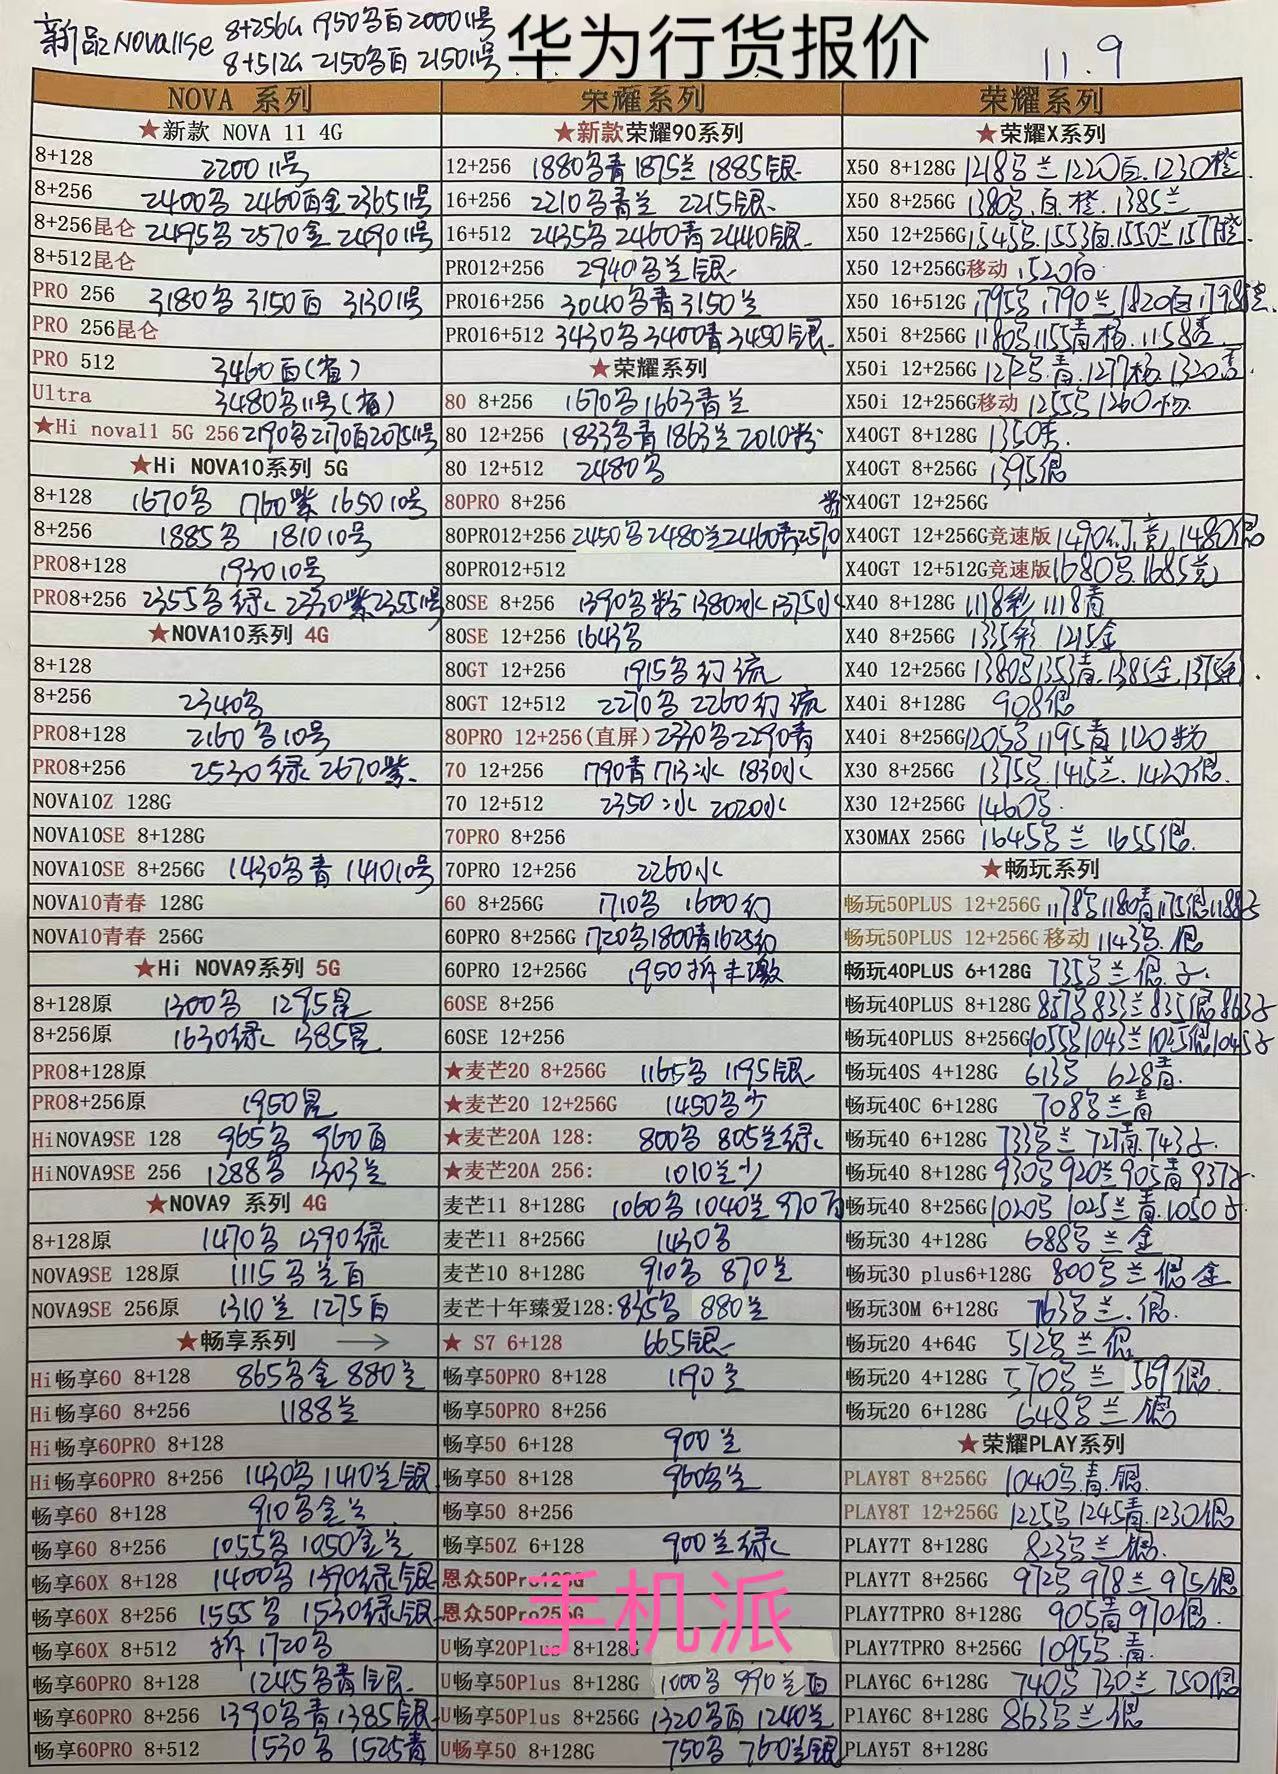 新品NOVA11se 8+256G 1950名白2000 11号
8+512G 2150名白 2150 11号
华为行货报价
11.9
NOVA 系列
★新款 NOVA 11 4G
8+128 2200 11号
8+256 2400名 2460百金 2365 11号
8+256昆仑 2495名 2570金 2490 11号
8+512昆仑
PRO 256 3180名 3150百 3130 11号
PRO 256昆仑
PRO 512 3460百(省)
Ultra 3480名11号(省)
★Hi nova11 5G 256 2190名2170百2075 11号
★Hi NOVA10系列 5G
8+128 1670名 1760紫 1650 10号
8+256 1885名 1810 10号
PRO8+128 1930 10号
PRO8+256 2355名绿 2330紫2355 11号
★NOVA10系列 4G
8+128
8+256 2340名
PRO8+128 2160名10号
PRO8+256 2530绿 2670紫
NOVA10Z 128G
NOVA10SE 8+128G
NOVA10SE 8+256G 1430名青 1410 10号
NOVA10青春 128G
NOVA10青春 256G
★Hi NOVA9系列 5G
8+128原 1300名 1295昆
8+256原 1630绿 1385昆
PRO8+128原
PRO8+256原 1950昆
HiNOVA9SE 128 965名 960百
HiNOVA9SE 256 1288名 1303兰
★NOVA9 系列 4G
8+128原 1470名 1390绿
NOVA9SE 128原 1115名兰百
NOVA9SE 256原 1310兰 1275百
★畅享系列 →
Hi畅享60 8+128 865名金 880兰
Hi畅享60 8+256 1188兰
Hi畅享60PRO 8+128
Hi畅享60PRO 8+256 1430名1410兰银
畅享60 8+128 910名金兰
畅享60 8+256 1055名 1050金兰
畅享60X 8+128 1400名 1390绿银
畅享60X 8+256 1555名 1530绿银
畅享60X 8+512 拆 1720名
畅享60PRO 8+128 1245名青银
畅享60PRO 8+256 1390名青1385银
畅享60PRO 8+512 1530名 1525青
荣耀系列
★新款荣耀90系列
12+256 1880名青1875兰 1885银
16+256 2210名青兰 2215银
16+512 2435名2460青2440银
PRO12+256 2940名兰银
PRO16+256 3040名青3150兰
PRO16+512 3430名3400青3450银
★荣耀系列
80 8+256 1670名1663青兰
80 12+256 1833名青 1863兰 2010粉
80 12+512 2480名
80PRO 8+256
80PRO12+256 2450名2480兰2460青2570粉
80PRO12+512
80SE 8+256 1390名粉1380冰1375水
80SE 12+256 1643名
80GT 12+256 1915名幻流
80GT 12+512 2270名2260幻流
80PRO 12+256(直屏) 2330名2290青
70 12+256 1790青1713冰 1830水
70 12+512 2350冰 2020水
70PRO 8+256
70PRO 12+256 2260水
60 8+256G 1710名 1600幻
60PRO 8+256G 1720名1800青1625幻
60PRO 12+256G 1950拆未激
60SE 8+256
60SE 12+256
★麦芒20 8+256G 1165名 1195银
★麦芒20 12+256G 1450名少
★麦芒20A 128: 800名 805兰绿
★麦芒20A 256: 1010兰少
麦芒11 8+128G 1060名1040兰 970百
麦芒11 8+256G 1430名
麦芒10 8+128G 910名 870兰
麦芒十年臻爱128: 835名 880兰
★ S7 6+128 665银
畅享50PRO 8+128 1190兰
畅享50PRO 8+256
畅享50 6+128 900兰
畅享50 8+128 960名兰
畅享50 8+256
畅享50Z 6+128 900兰绿
恩众50Pro128G
恩众50Pro256G
手机派
U畅享20Plus 8+128G
U畅享50Plus 8+128G 1000名 990兰百
U畅享50Plus 8+256G 1320名百1240兰
U畅享50 8+128G 750名 760兰银
荣耀系列
★荣耀X系列
X50 8+128G 1218名兰1220百.1230橙
X50 8+256G 1380名.百.橙.1385兰
X50 12+256G 1545名.1553百.1550兰1577橙
X50 12+256G移动 1520百
X50 16+512G 1795名1790兰1820百1798橙
X50i 8+256G 1180名1155青杨.1158青
X50i 12+256G 1275名.青.1277杨.1320青
X50i 12+256G移动 1255名1260杨
X40GT 8+128G 1350青.
X40GT 8+256G 1395银
X40GT 12+256G
X40GT 12+256G竞速版 1490幻竞1480银
X40GT 12+512G竞速版 1680名.1685竞
X40 8+128G 1118彩 1118青
X40 8+256G 1335彩 1215金
X40 12+256G 1380名1353青.1385金.1375彩
X40i 8+128G 908银
X40i 8+256G 1205名1195青1120粉
X30 8+256G 1375名.1415兰.1420银
X30 12+256G 1460名.
X30MAX 256G 1645名兰 1655银
★畅玩系列
畅玩50PLUS 12+256G 1178名1180青1175银1188子
畅玩50PLUS 12+256G移动 1143名.银
畅玩40PLUS 6+128G 735名兰银.子.
畅玩40PLUS 8+128G 857名833兰835银863子
畅玩40PLUS 8+256G 1055名1043兰1025银1045子
畅玩40S 4+128G 613名 628青
畅玩40C 6+128G 708名兰青
畅玩40 6+128G 733名兰 727青.743子.
畅玩40 8+128G 930名920兰905青937子
畅玩40 8+256G 1020名 1025兰青.1050子
畅玩30 4+128G 688名兰金
畅玩30 plus6+128G 800名兰银金
畅玩30M 6+128G 763名兰.银.
畅玩20 4+64G 512名兰银
畅玩20 4+128G 570名兰 569银.
畅玩20 6+128G 648名兰银
★荣耀PLAY系列
PLAY8T 8+256G 1040名.青.银
PLAY8T 12+256G 1225名1245青.1230银
PLAY7T 8+128G 823名兰银.
PLAY7T 8+256G 972名978兰975银
PLAY7TPRO 8+128G 905青970银.
PLAY7TPRO 8+256G 1095名.青.
PLAY6C 6+128G 740名730兰750银
PlAY6C 8+128G 863名兰银
PLAY5T 8+128G